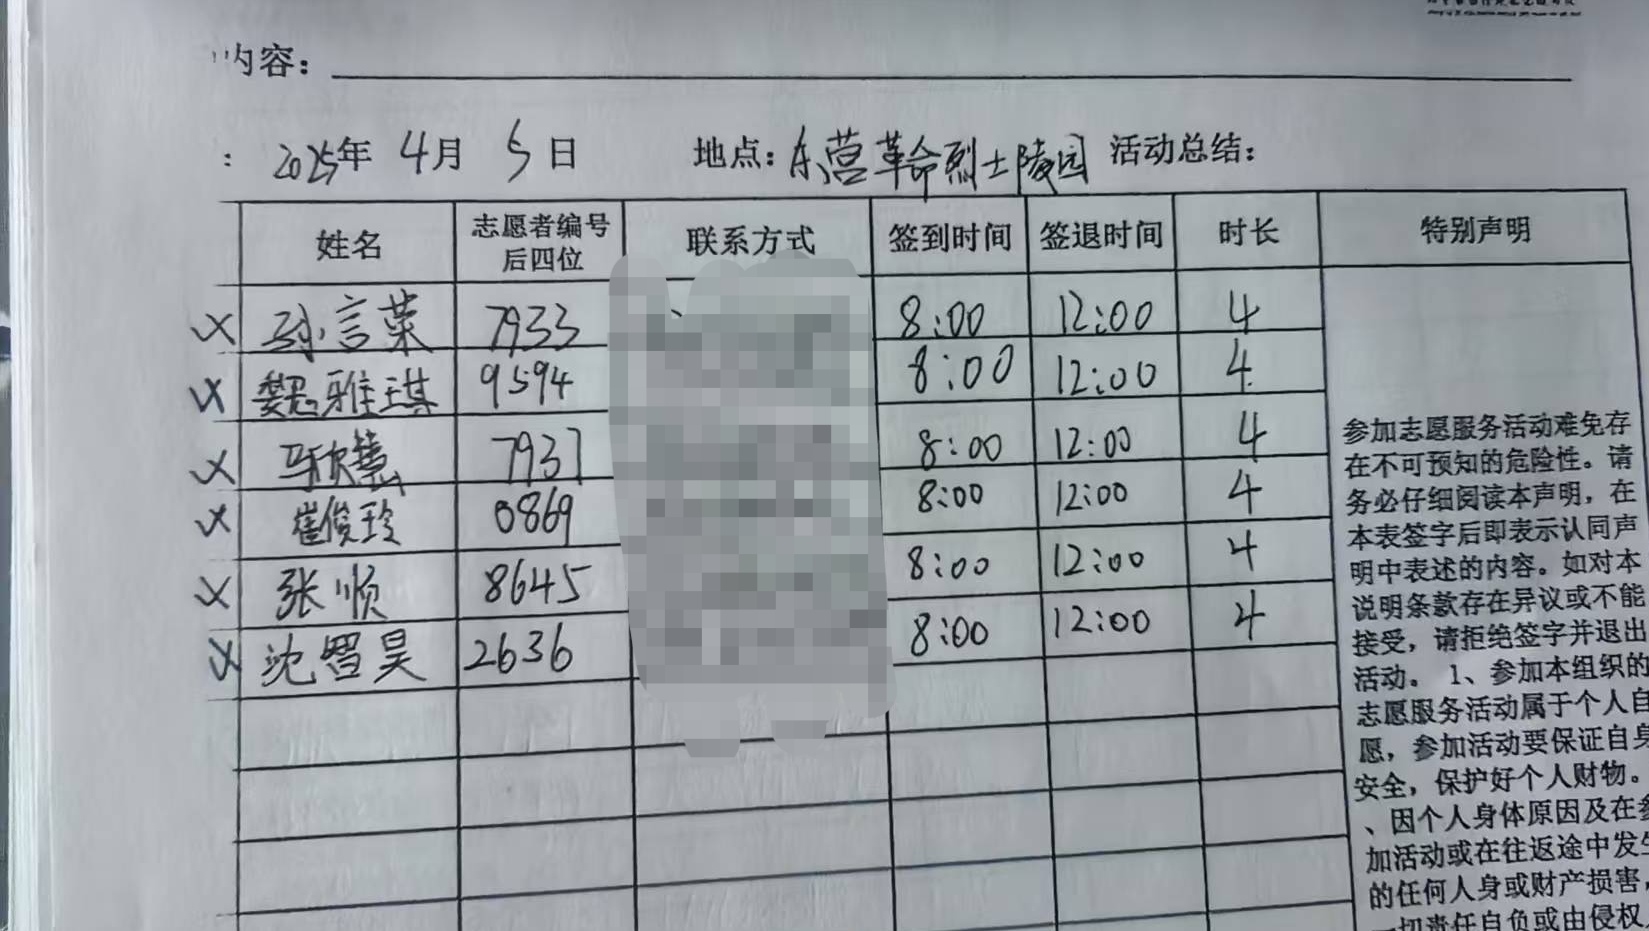 内容：
： 2025年 4月 5日 地点：东营革命烈士陵园 活动总结：
姓名 志愿者编号后四位 联系方式 签到时间 签退时间 时长 特别声明
孙言荣 7933 8:00 12:00 4
魏雅琪 9594 8:00 12:00 4
马欣慧 7937 8:00 12:00 4
崔俊玲 0869 8:00 12:00 4
张顺 8645 8:00 12:00 4
沈智昊 2636 8:00 12:00 4
参加志愿服务活动难免存
在不可预知的危险性。请
务必仔细阅读本声明，在
本表签字后即表示认同声
明中表述的内容。如对本
说明条款存在异议或不能
接受，请拒绝签字并退出
活动。 1、参加本组织的
志愿服务活动属于个人自
愿，参加活动要保证自身
安全，保护好个人财物。
、因个人身体原因及在参
加活动或在往返途中发生
的任何人身或财产损害，
一切责任自负或由侵权